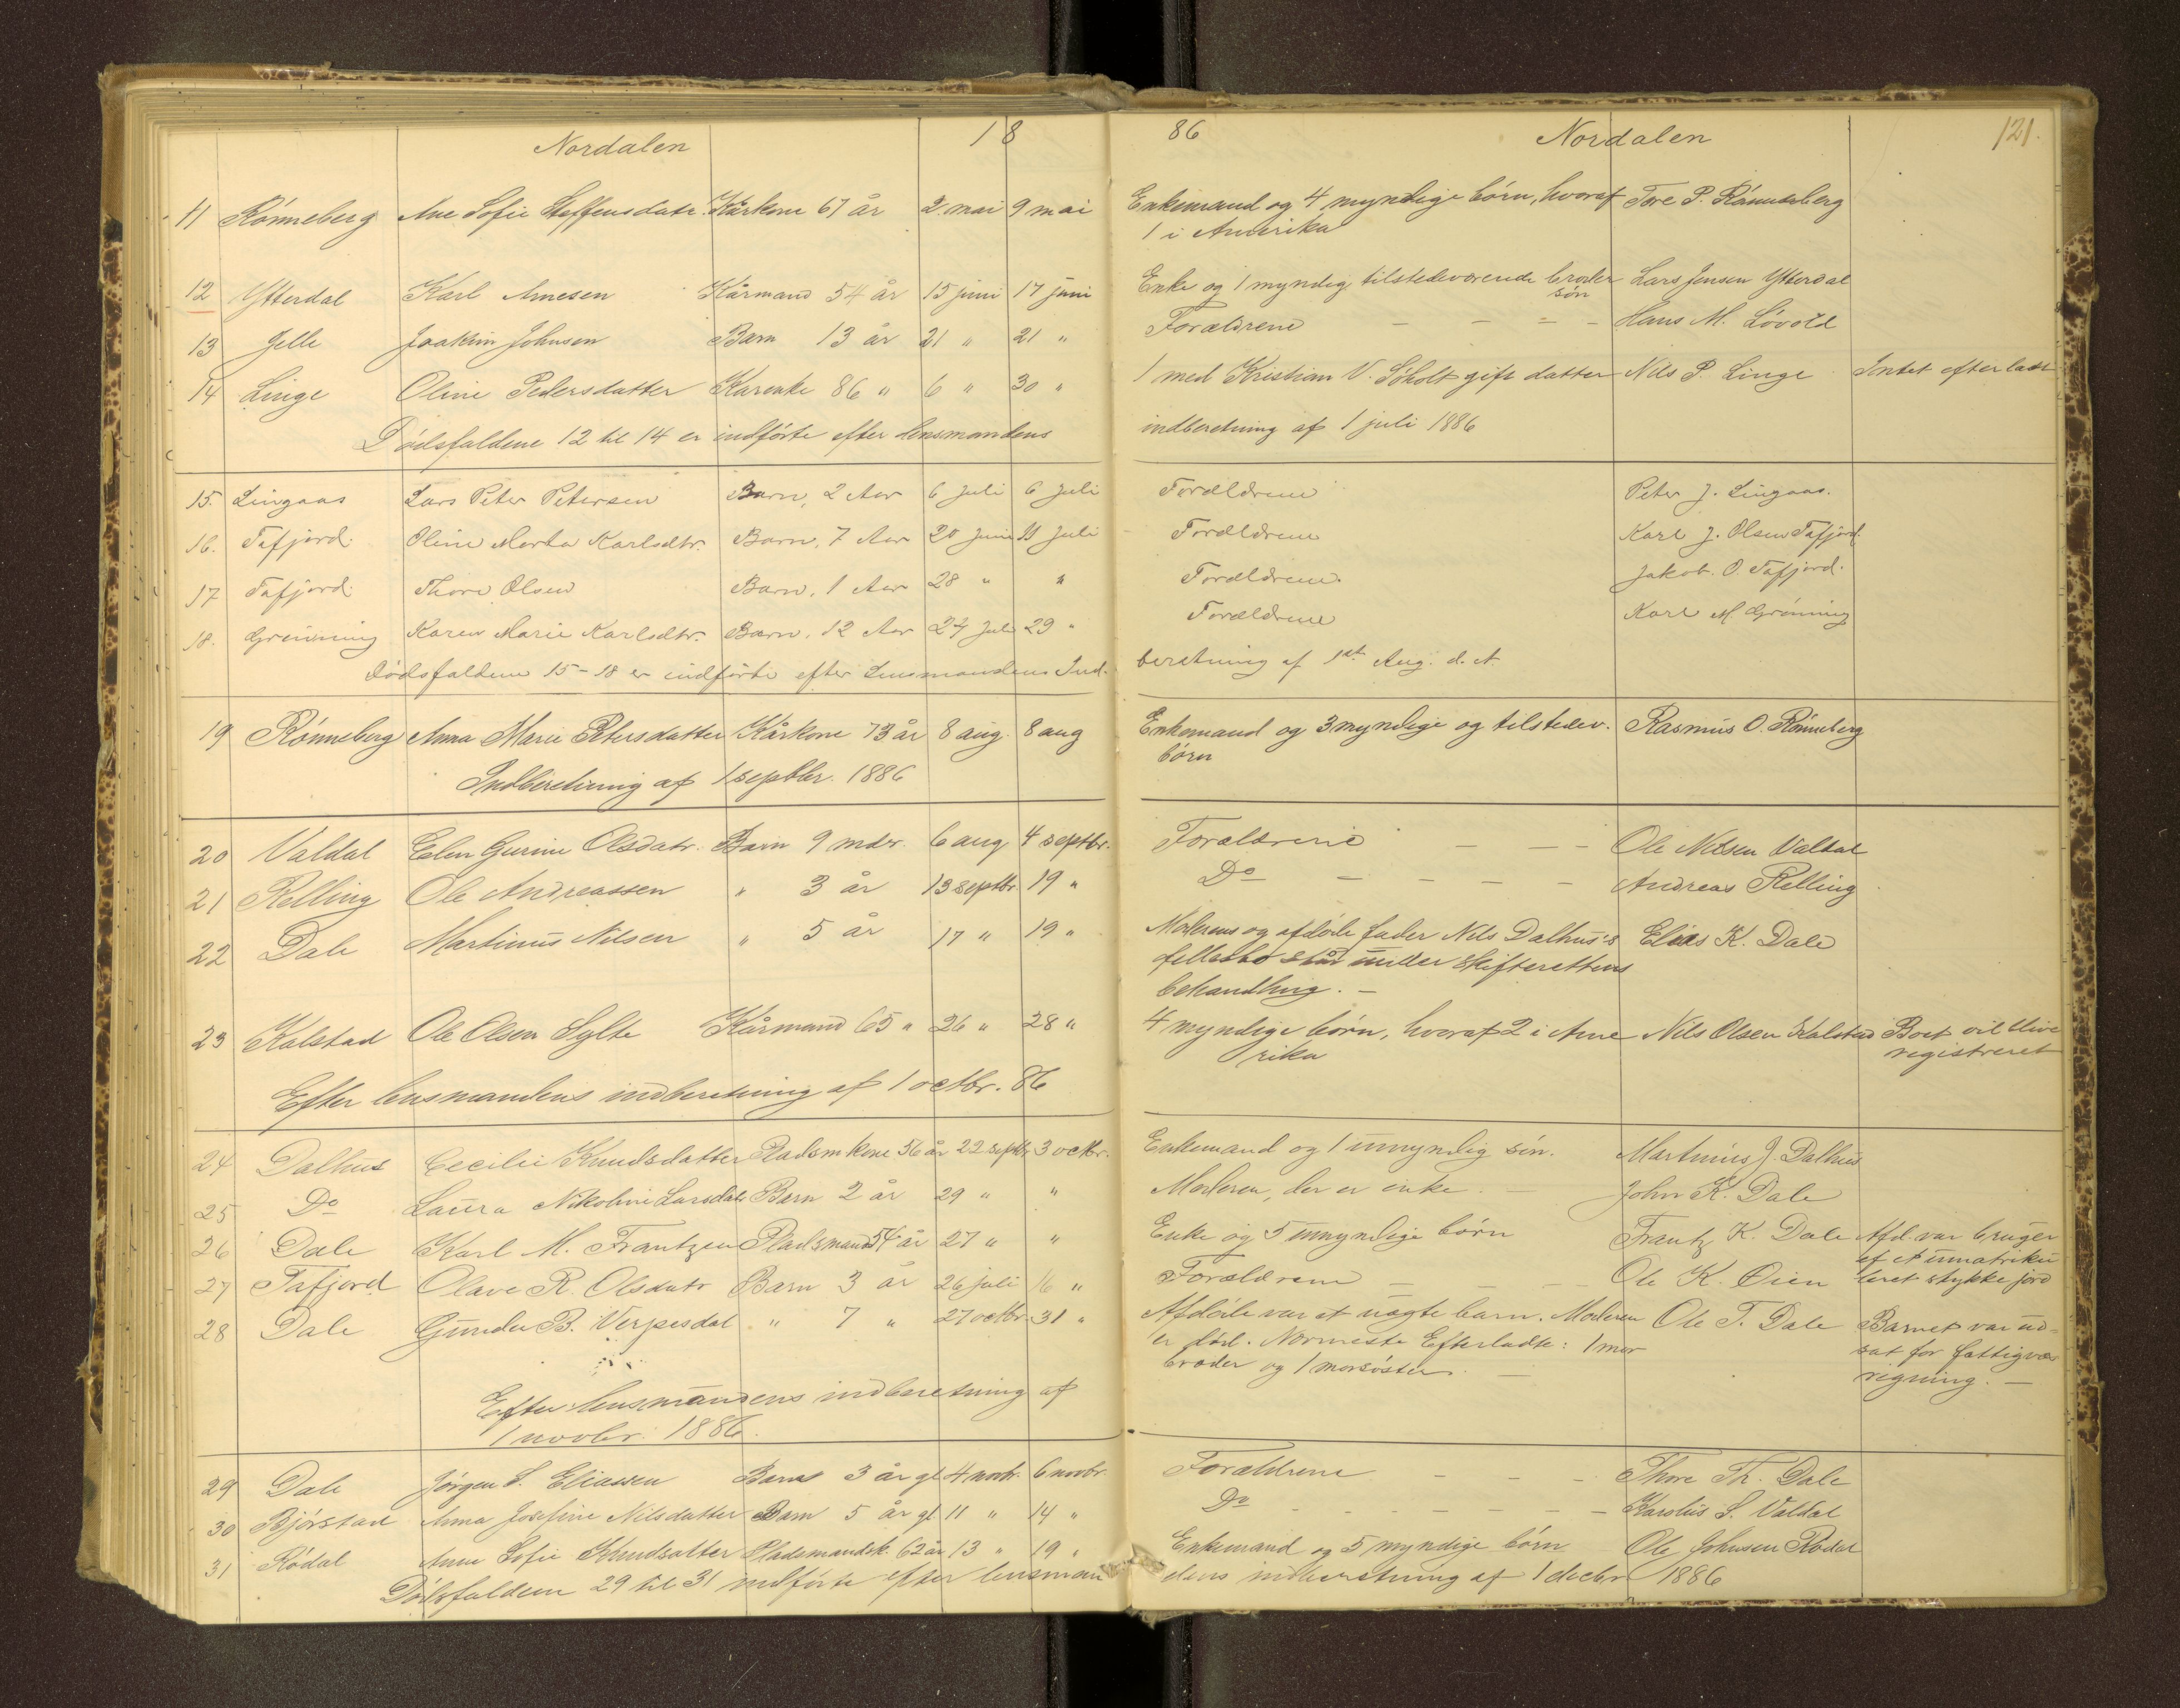 Nordalen 18 86 Nordalen 121.
11 Rónneberg Ane Sofie Steffensdatr. Kårkone 67 år 2 mai 9 mai Enkemand og 4 myndige börn, hvoraf Tore P. Rónneberg
1 i Amerika
12 Ytterdal Karl Arnesen Kårmand 54 år 15 juni 17 juni Enke og 1 myndig tilstedeværende broder Lars Jensen Ytterdal
sön
13 Jelle Joakim Johnsen Barn 13 år 21 " 21 " Forældrene – – – – Hans M. Lóvold
14 Linge Oline Pedersdatter Kårenke 86 " 6 " 30 " 1 med Kristian V. Sóholt gift datter Nils P. Linge Intet efterladt
Dódsfaldene 12 til 14 er indfórte efter lensmandens indberetning af 1 juli 1886
15. Lingaas Lars Peter Petersen Barn, 2 Aar 6 Juli 6 Juli Forældrene Peter J. Lingaas.
16. Tafjord. Oline Marta Karlsdtr. Barn, 7 Aar 20 Juni 11 Juli Forældrene Karl J. Olsen Tafjord.
17 Tafjord. Thore Olsen Barn, 1 Aar 28 " " Forældrene. Jakob. O. Tafjord.
18. Grönning Karen Marie Karlsdtr. Barn, 12 Aar 24 Juli 29 " Forældrene Karl M Grönning
Dódsfaldene 15–18 er indförte efter Lensmandens Ind- beretning af 1st Aug. d. A.
19 Rónneberg Anna Marie Petersdatter Kårkone 73 år 8 aug. 8 aug Enkemand og 3 myndige og tilstedev. Rasmus O. Rónneberg
börn
Indberetning af 1 septbr. 1886
20 Valdal Elen Gurine Olsdatr. Barn 9 mdr. 6 aug 4 septbr. Forældrene – – – Ole Nilsen Valdal
21 Relling Ole Andreassen " 3 år 13 septbr 19 " Do – – – – – Andreas Relling
22 Dale Martinus Nilsen " 5 år 17 " 19 " Moderens og afdöde fader Nils Dalhus's Elias K. Dale
fellesbo står under skifterettens
behandling. –
23 Kalstad Ole Olsen Sylte Kårmand 65 " 26 " 28 " 4 myndige börn, hvoraf 2 i Ame Nils Olsen Kalstad Boet vil blive
rika registreret
Efter lensmandens indberetning af 1 octbr. 86
24 Dalhus Cecilie Knudsdatter Pladsmkone 56 år 22 septbr 3 octbr. Enkemand og 1 umyndig sön. Martinus J. Dalhus
25 Do Laura Nikoline Larsdatr Barn 2 år 29 " " Moderen, der er enke. – John K. Dale
26 Dale Karl M. Frantzen Pladsmand 54 år 27 " " Enke og 5 umyndige börn Frantz K. Dale Afd. var bruger
af et umatriku
27 Tafjord Olave R. Olsdatr Barn 3 år 26 juli 16 " Forældrene – – – Ole K. Öien leret stykke jord
28 Dale Gunder B. Verpesdal " 7 " 27 octbr. 31 " Afdöde var et uægte barn. Moderen Ole T. Dale Barnet var ud-
er död. Nærmeste Efterladte: 1 mor sat for fattigvæ
broder og 1 morsöster. – rigning. –
Efter lensmandens indberetning af
1 novbr. 1886.
29 Dale Jörgen S. Eliassen Barn 3 år gl 4 novbr. 6 novbr. Forældrene – – – Thore Th. Dale
30 Bjórstad Anna Josefine Nilsdatter Barn 5 år gl 11 " 14 " Do – – – – – – Karolus S. Valdal
31 Ródal Anne Sofie Knudsdatter Pladsmandsk. 62 år 13 " 19 " Enkemand og 5 myndige börn Ole Johnsen Rödal
Dödsfaldene 29 til 31 indförte efter lensman dens indberetning af 1 decbr 1886